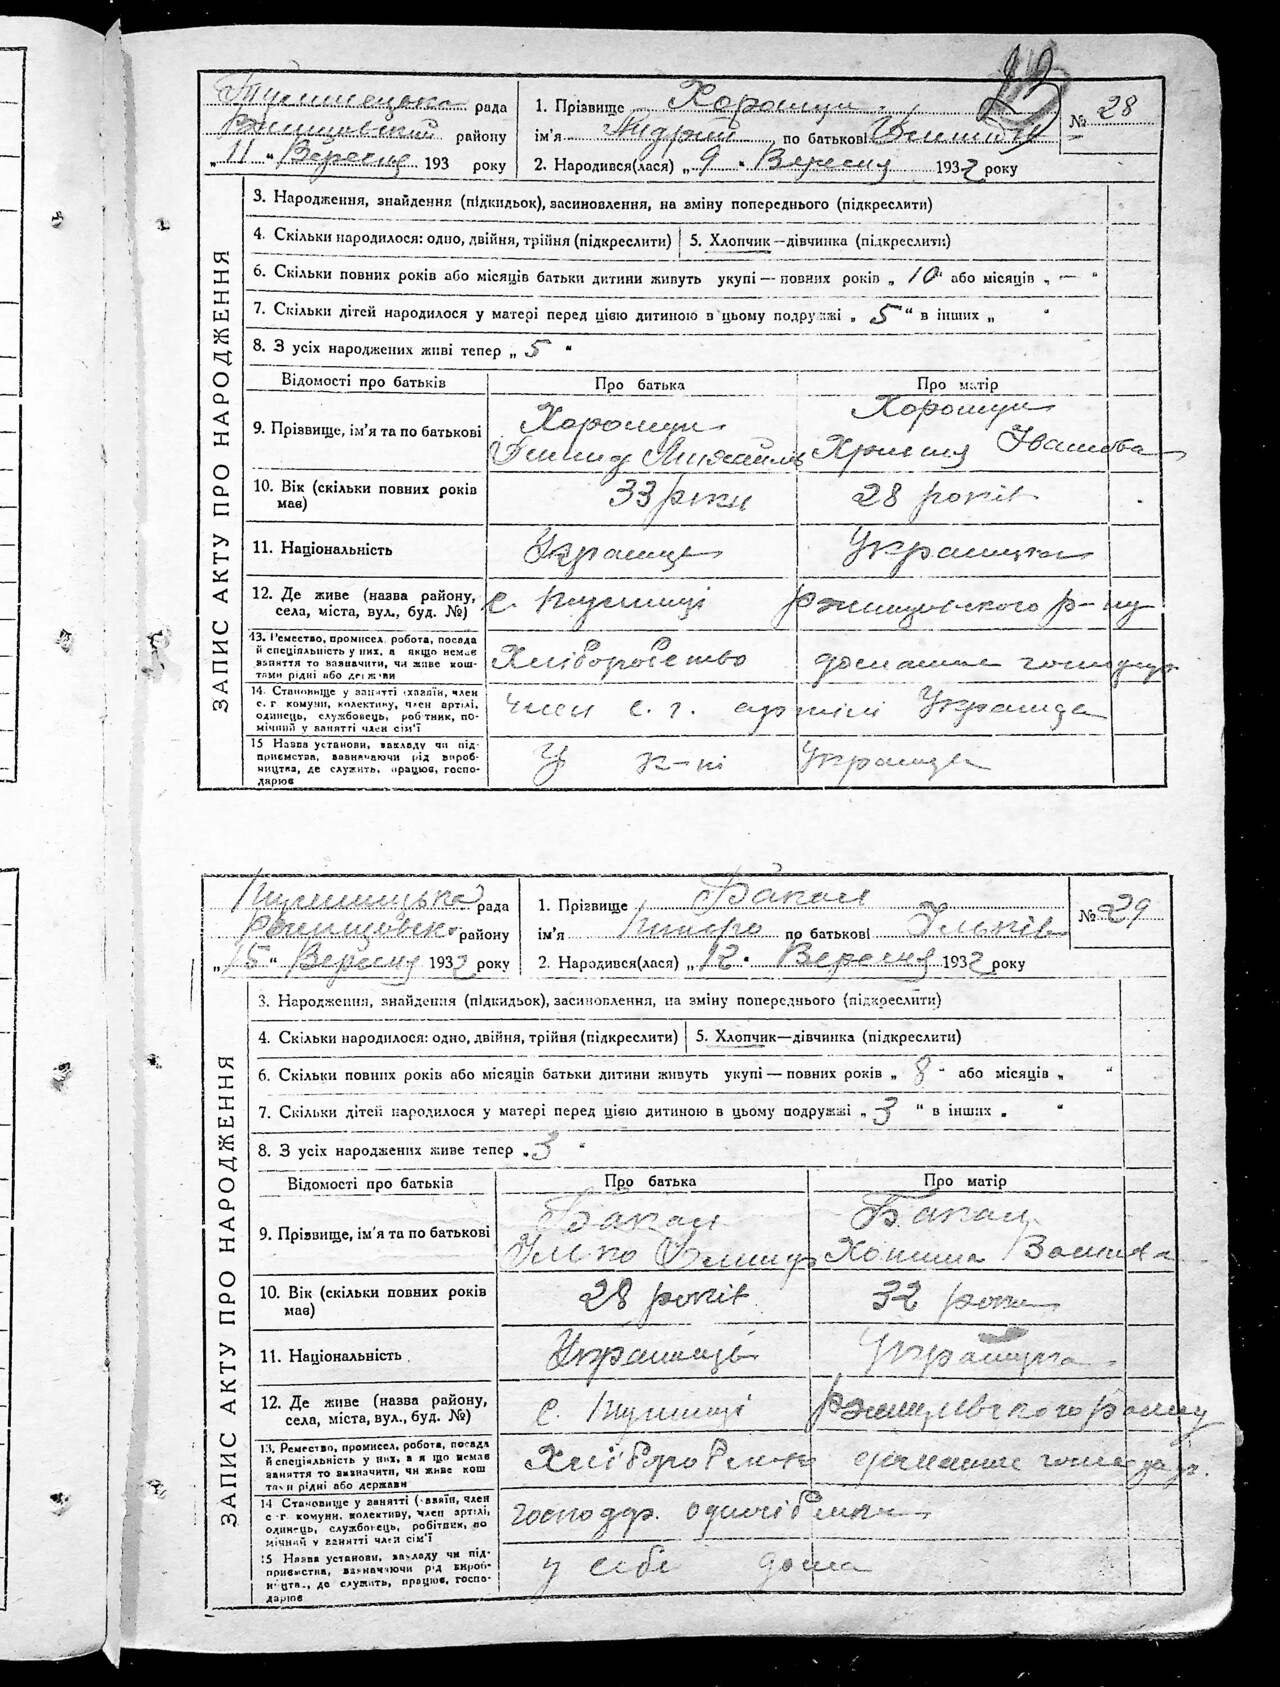 рада
району
„11" Вересня 193 року
1. Прізвище Хорошун
ім'я Андрій по батькові
2. Народився(лася) „9" Вересня 1932 року
№ 28
ЗАПИС АКТУ ПРО НАРОДЖЕННЯ
3. Народження, знайдення (підкидьок), засиновлення, на зміну попереднього (підкреслити)
4. Скільки народилося: одно, двійня, трійня (підкреслити)
5. Хлопчик—дівчинка (підкреслити)
6. Скільки повних років або місяців батьки дитини живуть укупі—повних років „10" або місяців „—"
7. Скільки дітей народилося у матері перед цією дитиною в цьому подружжі „5" в інших „ "
8. З усіх народжених живі тепер „5"
Відомості про батьків
Про батька
Про матір
9. Прізвище, ім'я та по батькові
Хорошун
Хорошун
Івановна
10. Вік (скільки повних років
має)
33 роки
28 років
11. Національність
Українець
Українка
12. Де живе (назва району,
села, міста, вул., буд. №)
с.
р-ну
13. Ремество, промисел, робота, посада
й спеціяльність у них, а якщо немає
заняття то зазначити, чи живе кош-
тами рідні або держави
Хліборобство
домашнє
14. Становище у занятті (хазяїн, член
с.-г. комуни, колективу, член артілі,
одинець, службовець, робітник, по-
мічний у занятті член сім'ї
член с. г. артілі
15 Назва установи, закладу чи під-
приємства, зазначаючи рід вироб-
ництва, де служить, працює, госпо-
дарює
У к-пі
рада
району
„15" Вересня 1932 року
1. Прізвище Бакал
ім'я по батькові Ільків
2. Народився(лася) „12" Вересня 1932 року
№ 29
ЗАПИС АКТУ ПРО НАРОДЖЕННЯ
3. Народження, знайдення (підкидьок), засиновлення, на зміну попереднього (підкреслити)
4. Скільки народилося: одно, двійня, трійня (підкреслити)
5. Хлопчик—дівчинка (підкреслити)
6. Скільки повних років або місяців батьки дитини живуть укупі—повних років „8" або місяців „ "
7. Скільки дітей народилося у матері перед цією дитиною в цьому подружжі „3" в інших „ "
8. З усіх народжених живе тепер „3"
Відомості про батьків
Про батька
Про матір
9. Прізвище, ім'я та по батькові
Бакал
Бакал
Ілько
10. Вік (скільки повних років
має)
28 років
32 роки
11. Національність
Українець
Українка
12. Де живе (назва району,
села, міста, вул., буд. №)
с.
13. Ремество, промисел, робота, посада
й спеціяльність у них, а якщо немає
заняття то визначити, чи живе кош
тами рідні або держави
домашнє
14 Становище у занятті (хазяїн, член
с-г комуни, колективу, член артілі,
одинець, службовець, робітник, по
мічний у занятті член сім'ї
15 Назва установи, закладу чи під-
приємства, зазначаючи рід вироб-
ництва, де служить, працює, госпо-
дарює
у себе дома